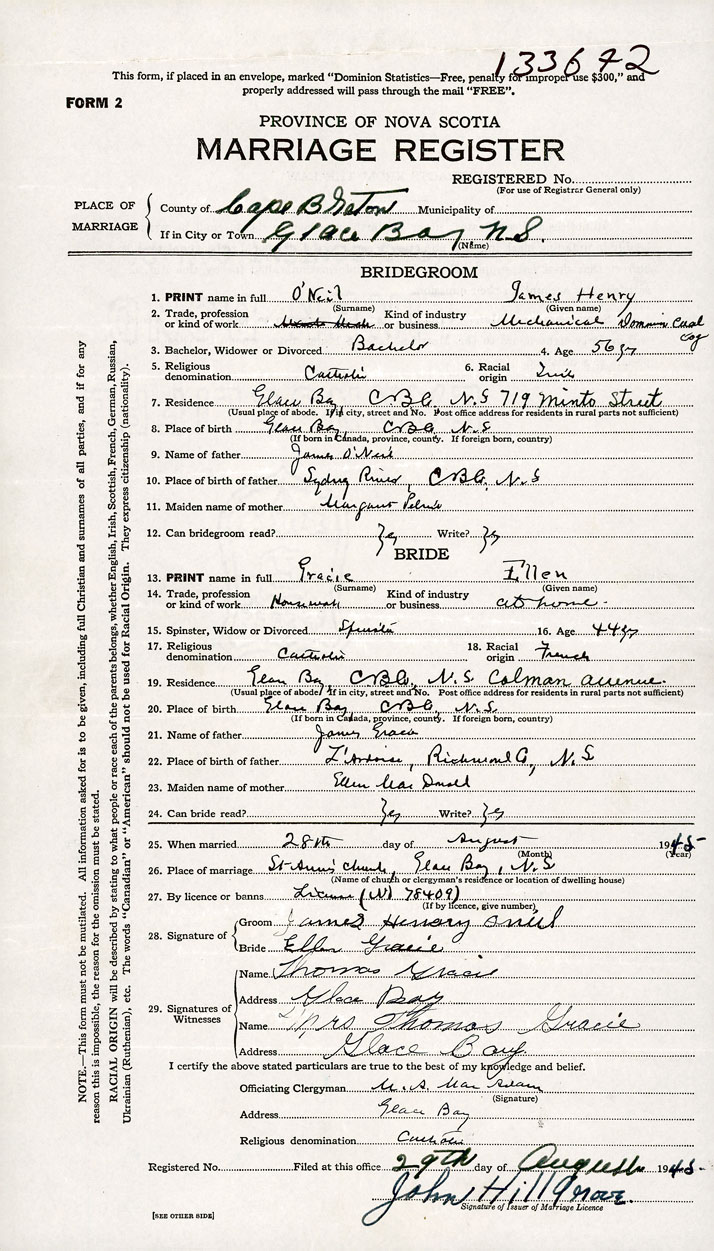 133642
This form, if placed in an envelope, marked “Dominion Statistics—Free, penalty for improper use $300,” and
properly addressed will pass through the mail “FREE”.
FORM 2
PROVINCE OF NOVA SCOTIA
MARRIAGE REGISTER
REGISTERED No.
(For use of Registrar General only)
PLACE OF MARRIAGE
County of Cape Breton Municipality of
If in City or Town Glace Bay N.S.
(Name)
BRIDEGROOM
1. PRINT name in full O'Neil James Henry
(Surname) (Given name)
2. Trade, profession or kind of work Kind of industry or business Mechanical Dominion Coal Coy
3. Bachelor, Widower or Divorced Bachelor 4. Age 56 yrs
5. Religious denomination Catholic 6. Racial origin Irish
7. Residence Glace Bay, C.B.Co. N.S 719 Minto Street
(Usual place of abode. If in city, street and No. Post office address for residents in rural parts not sufficient)
8. Place of birth Glace Bay, C.B.Co. N.S
(If born in Canada, province, county. If foreign born, country)
9. Name of father James O'Neil
10. Place of birth of father Sydney River, C.B.Co. N.S
11. Maiden name of mother Margaret
12. Can bridegroom read? yes Write? yes
BRIDE
13. PRINT name in full Gracie Ellen
(Surname) (Given name)
14. Trade, profession or kind of work Housework Kind of industry or business at home
15. Spinster, Widow or Divorced Spinster 16. Age 44 yrs
17. Religious denomination Catholic 18. Racial origin French
19. Residence Glace Bay, C.B.Co. N.S. Colman avenue
(Usual place of abode. If in city, street and No. Post office address for residents in rural parts not sufficient)
20. Place of birth Glace Bay, C.B.Co. N.S.
(If born in Canada, province, county. If foreign born, country)
21. Name of father James Gracie
22. Place of birth of father L'Ardoise, Richmond Co, N.S
23. Maiden name of mother Ellen Mac Donald
24. Can bride read? yes Write? yes
25. When married 28th day of August 1945
(Month) (Year)
26. Place of marriage St Ann's Church, Glace Bay, N.S
(Name of church or clergyman's residence or location of dwelling house)
27. By licence or banns License (N) 78409
(If by licence, give number)
28. Signature of
Groom James Henery Oneil
Bride Ellen Gracie
29. Signatures of Witnesses
Name Thomas Gracie
Address Glace Bay
Name Mrs Thomas Gracie
Address Glace Bay
I certify the above stated particulars are true to the best of my knowledge and belief.
Officiating Clergyman M. A. Mac Adam
(Signature)
Address Glace Bay
Religious denomination Catholic
Registered No. Filed at this office 29th day of August 1945
John Hillgrove.
Signature of Issuer of Marriage Licence
[SEE OTHER SIDE]
NOTE.—This form must not be mutilated. All information asked for is to be given, including full Christian and surnames of all parties, and if for any
reason this is impossible, the reason for the omission must be stated.
RACIAL ORIGIN will be described by stating to what people or race each of the parents belongs, whether English, Irish, Scottish, French, German, Russian,
Ukrainian (Ruthenian), etc. The words “Canadian” or “American” should not be used for Racial Origin. They express citizenship (nationality).